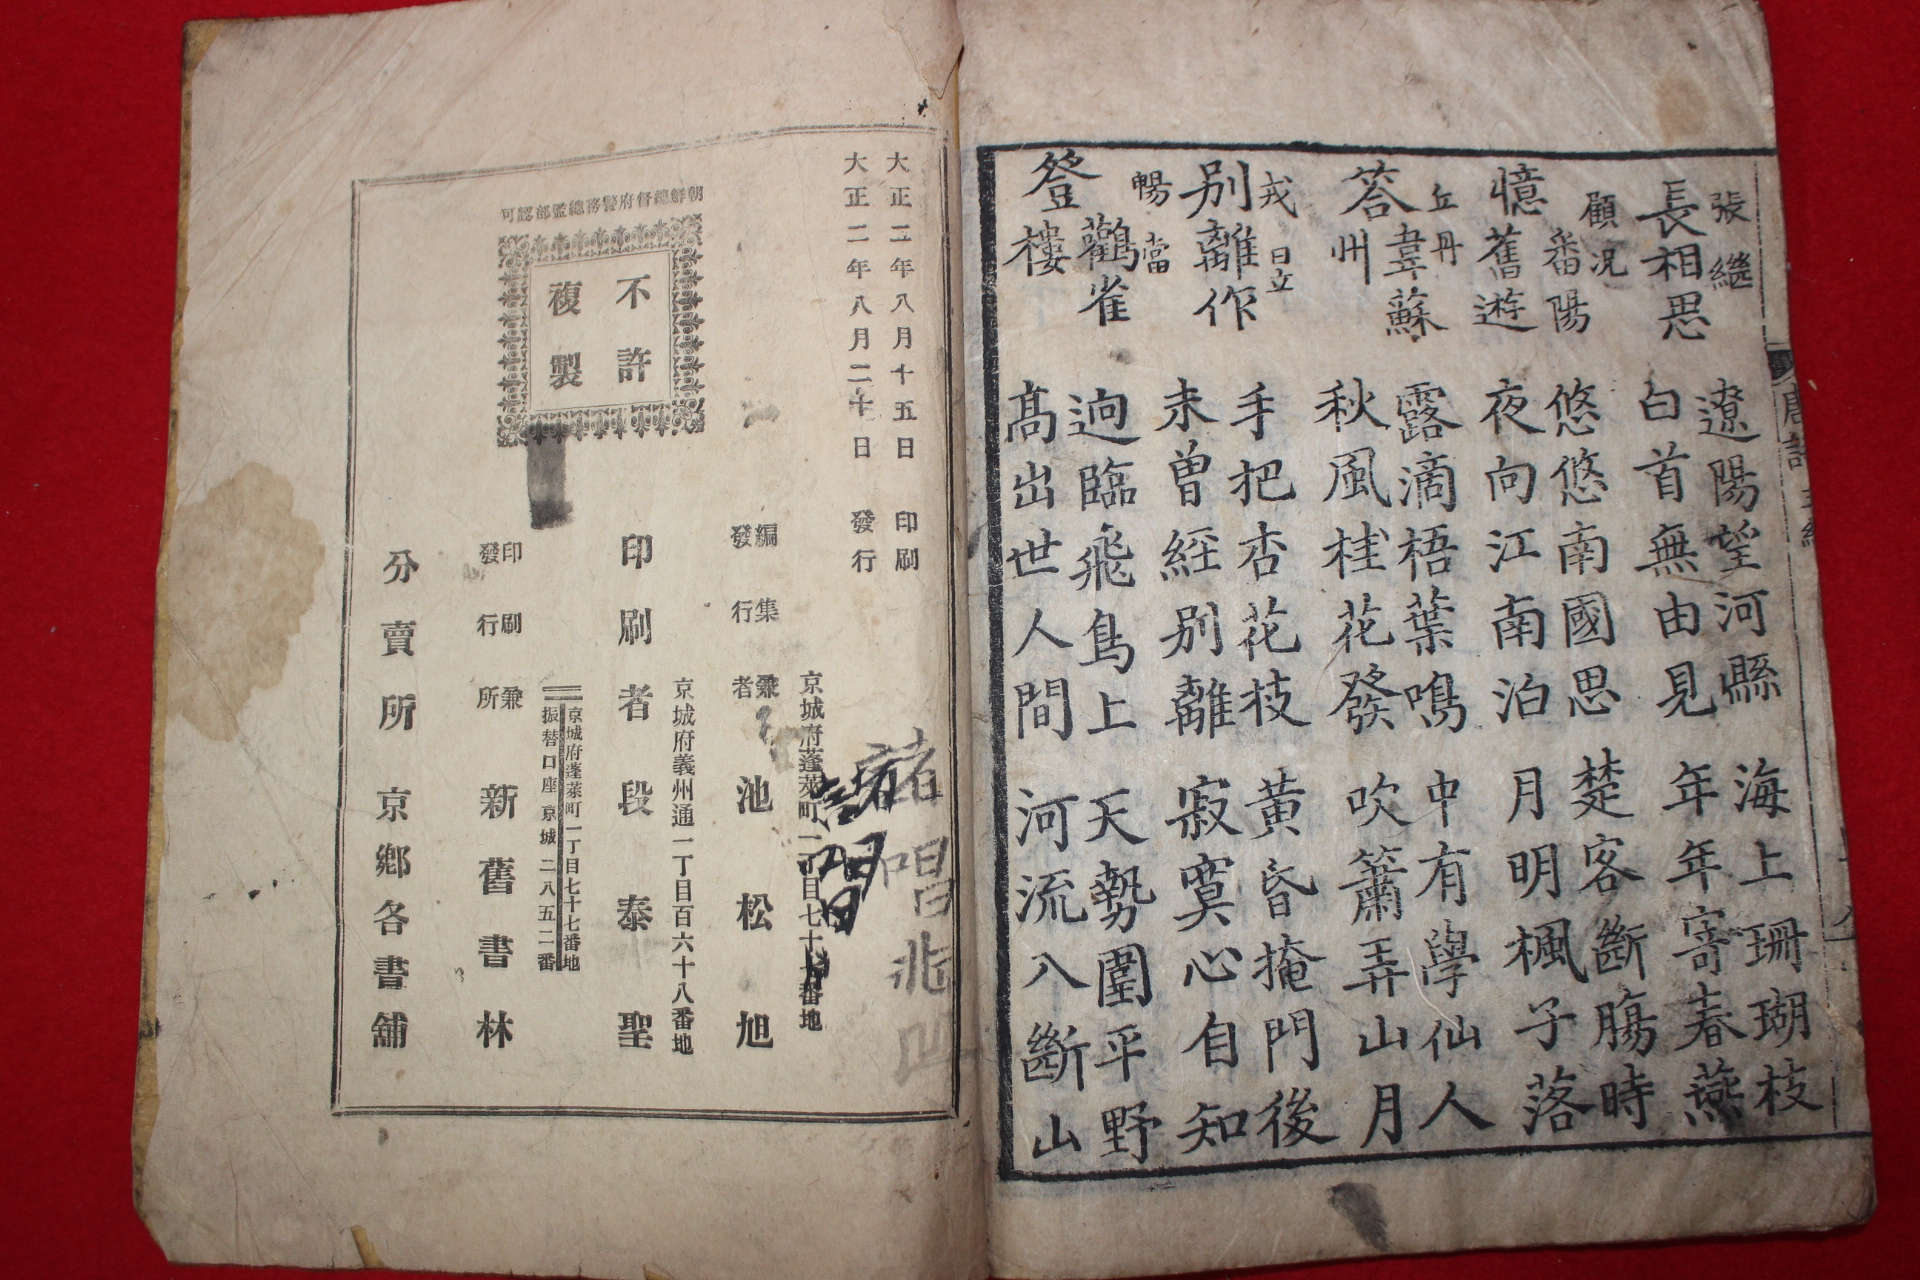 張繼
長相思
遼陽望河縣
白首無由見
海上珊瑚枝
年年寄春燕
顧況
番陽
憶舊遊
悠悠南國思
夜向江南泊
楚客斷腸時
月明楓子落
丘丹
答韋蘇州
露滴梧葉鳴
秋風桂花發
中有學仙人
吹簫弄山月
戎昱
别離作
手把杏花枝
未曽經别離
黄昏掩門後
寂寞心自知
暢當
登鸛雀樓
逈臨飛鳥上
高出世人間
天勢圍平野
河流入斷山
大正二年八月十五日 印刷
大正二年八月二十日 發行
京城府蓬萊町一丁目七十七番地
編集兼
發行者
池松旭
京城府義州通一丁目百六十八番地
印刷者 段泰聖
朝鮮總督府警務總監部認可
不許
複製
京城府蓬萊町一丁目七十七番地
振替口座京城二八五二番
印刷兼
發行所
新舊書林
分賣所 京鄉各書舖